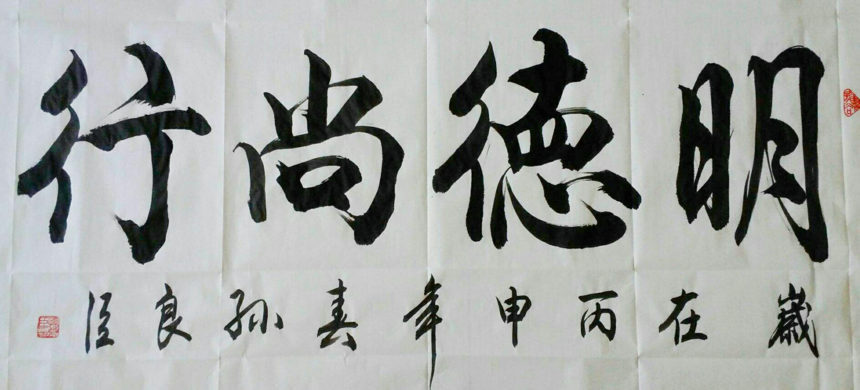 明德尚行
歲在丙申年春孙良臣